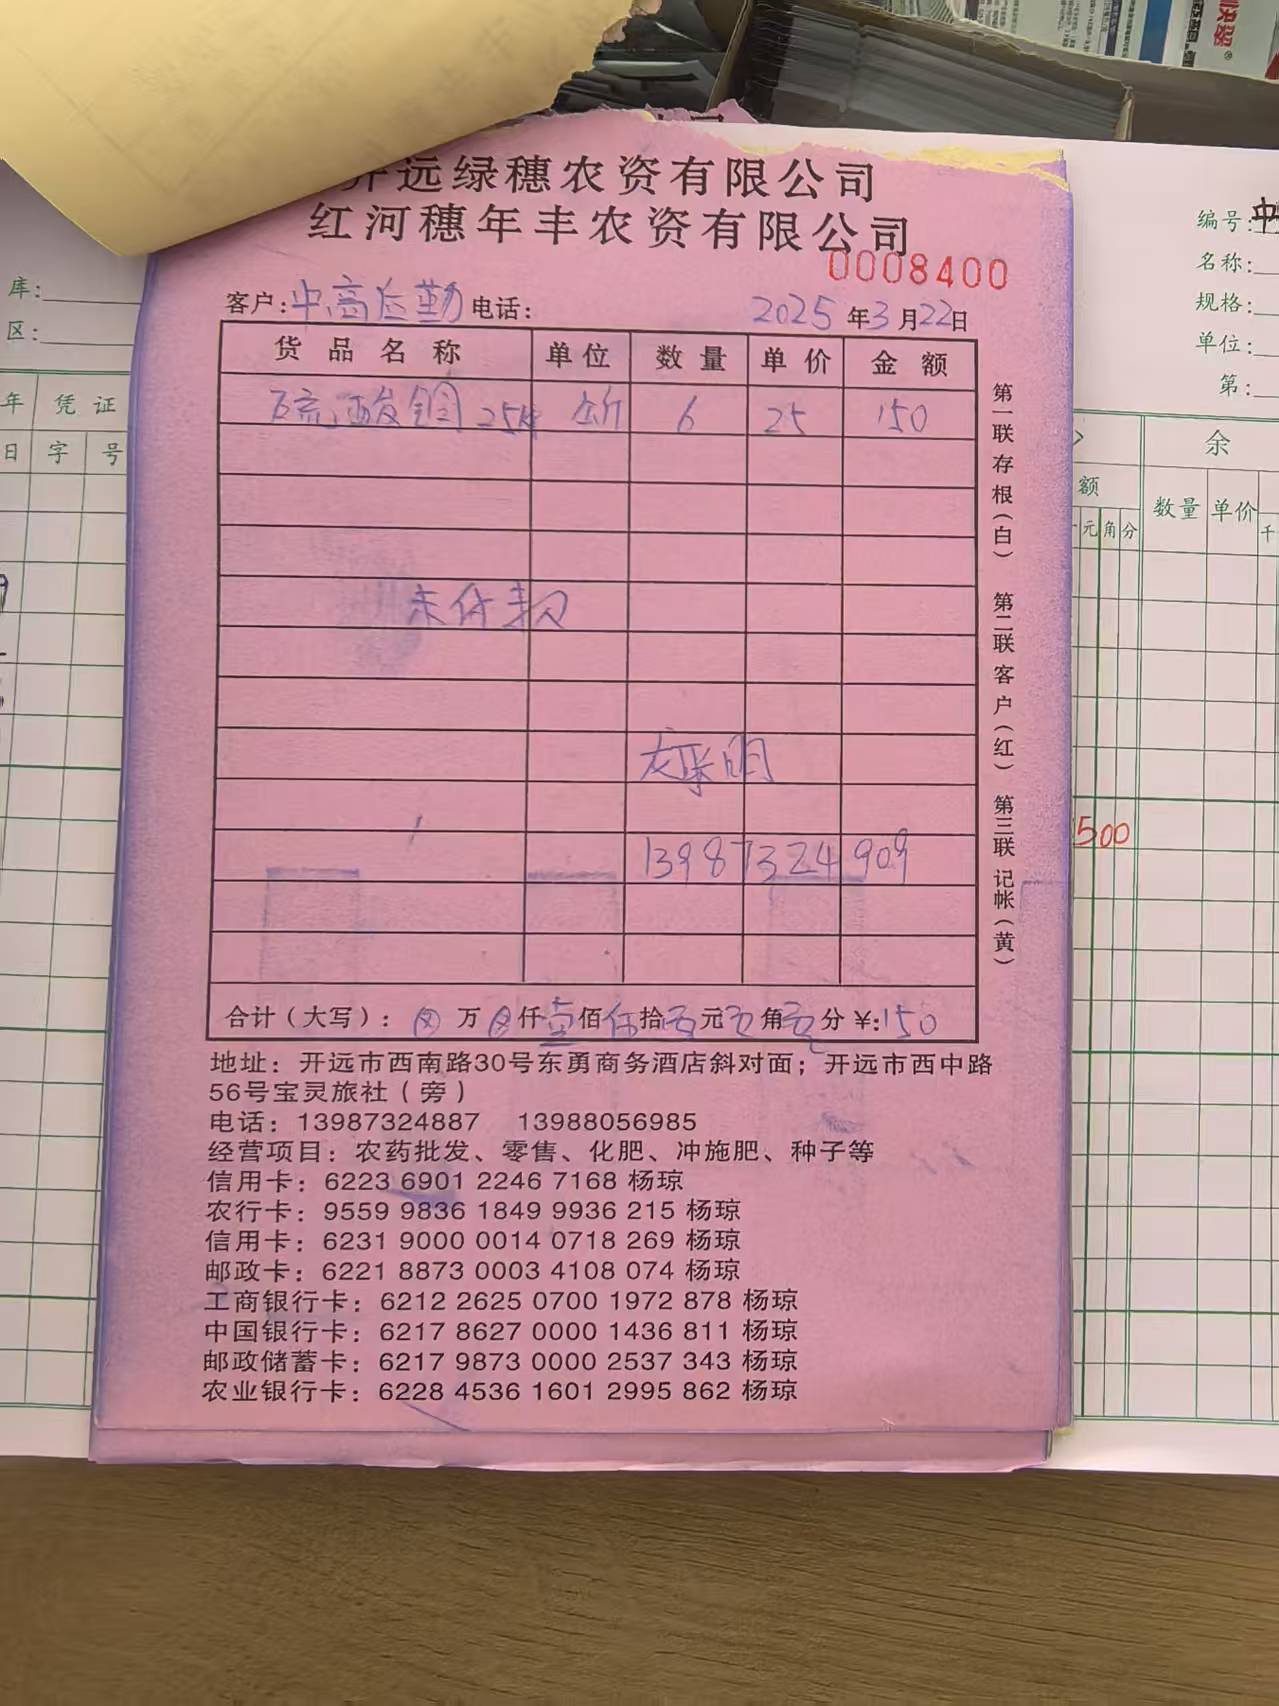 快翠®
开远绿穗农资有限公司
红河穗年丰农资有限公司
0008400
客户:中高后勤 电话: 2025年3月22日
货品名称 单位 数量 单价 金额
硫酸铜 25K 公斤 6 25 150
未付款
13987324909
合计(大写): ⊗万⊗仟壹佰伍拾零元零角零分 ¥:150
第一联存根(白) 第二联客户(红) 第三联记帐(黄)
地址:开远市西南路30号东勇商务酒店斜对面;开远市西中路
56号宝灵旅社(旁)
电话:13987324887 13988056985
经营项目:农药批发、零售、化肥、冲施肥、种子等
信用卡:6223 6901 2246 7168 杨琼
农行卡:9559 9836 1849 9936 215 杨琼
信用卡:6231 9000 0014 0718 269 杨琼
邮政卡:6221 8873 0003 4108 074 杨琼
工商银行卡:6212 2625 0700 1972 878 杨琼
中国银行卡:6217 8627 0000 1436 811 杨琼
邮政储蓄卡:6217 9873 0000 2537 343 杨琼
农业银行卡:6228 4536 1601 2995 862 杨琼
库:
区:
年 凭证
日 字 号
编号:中
名称:
规格:
单位:
第:
余
额 数量 单价
元 角 分 千
500